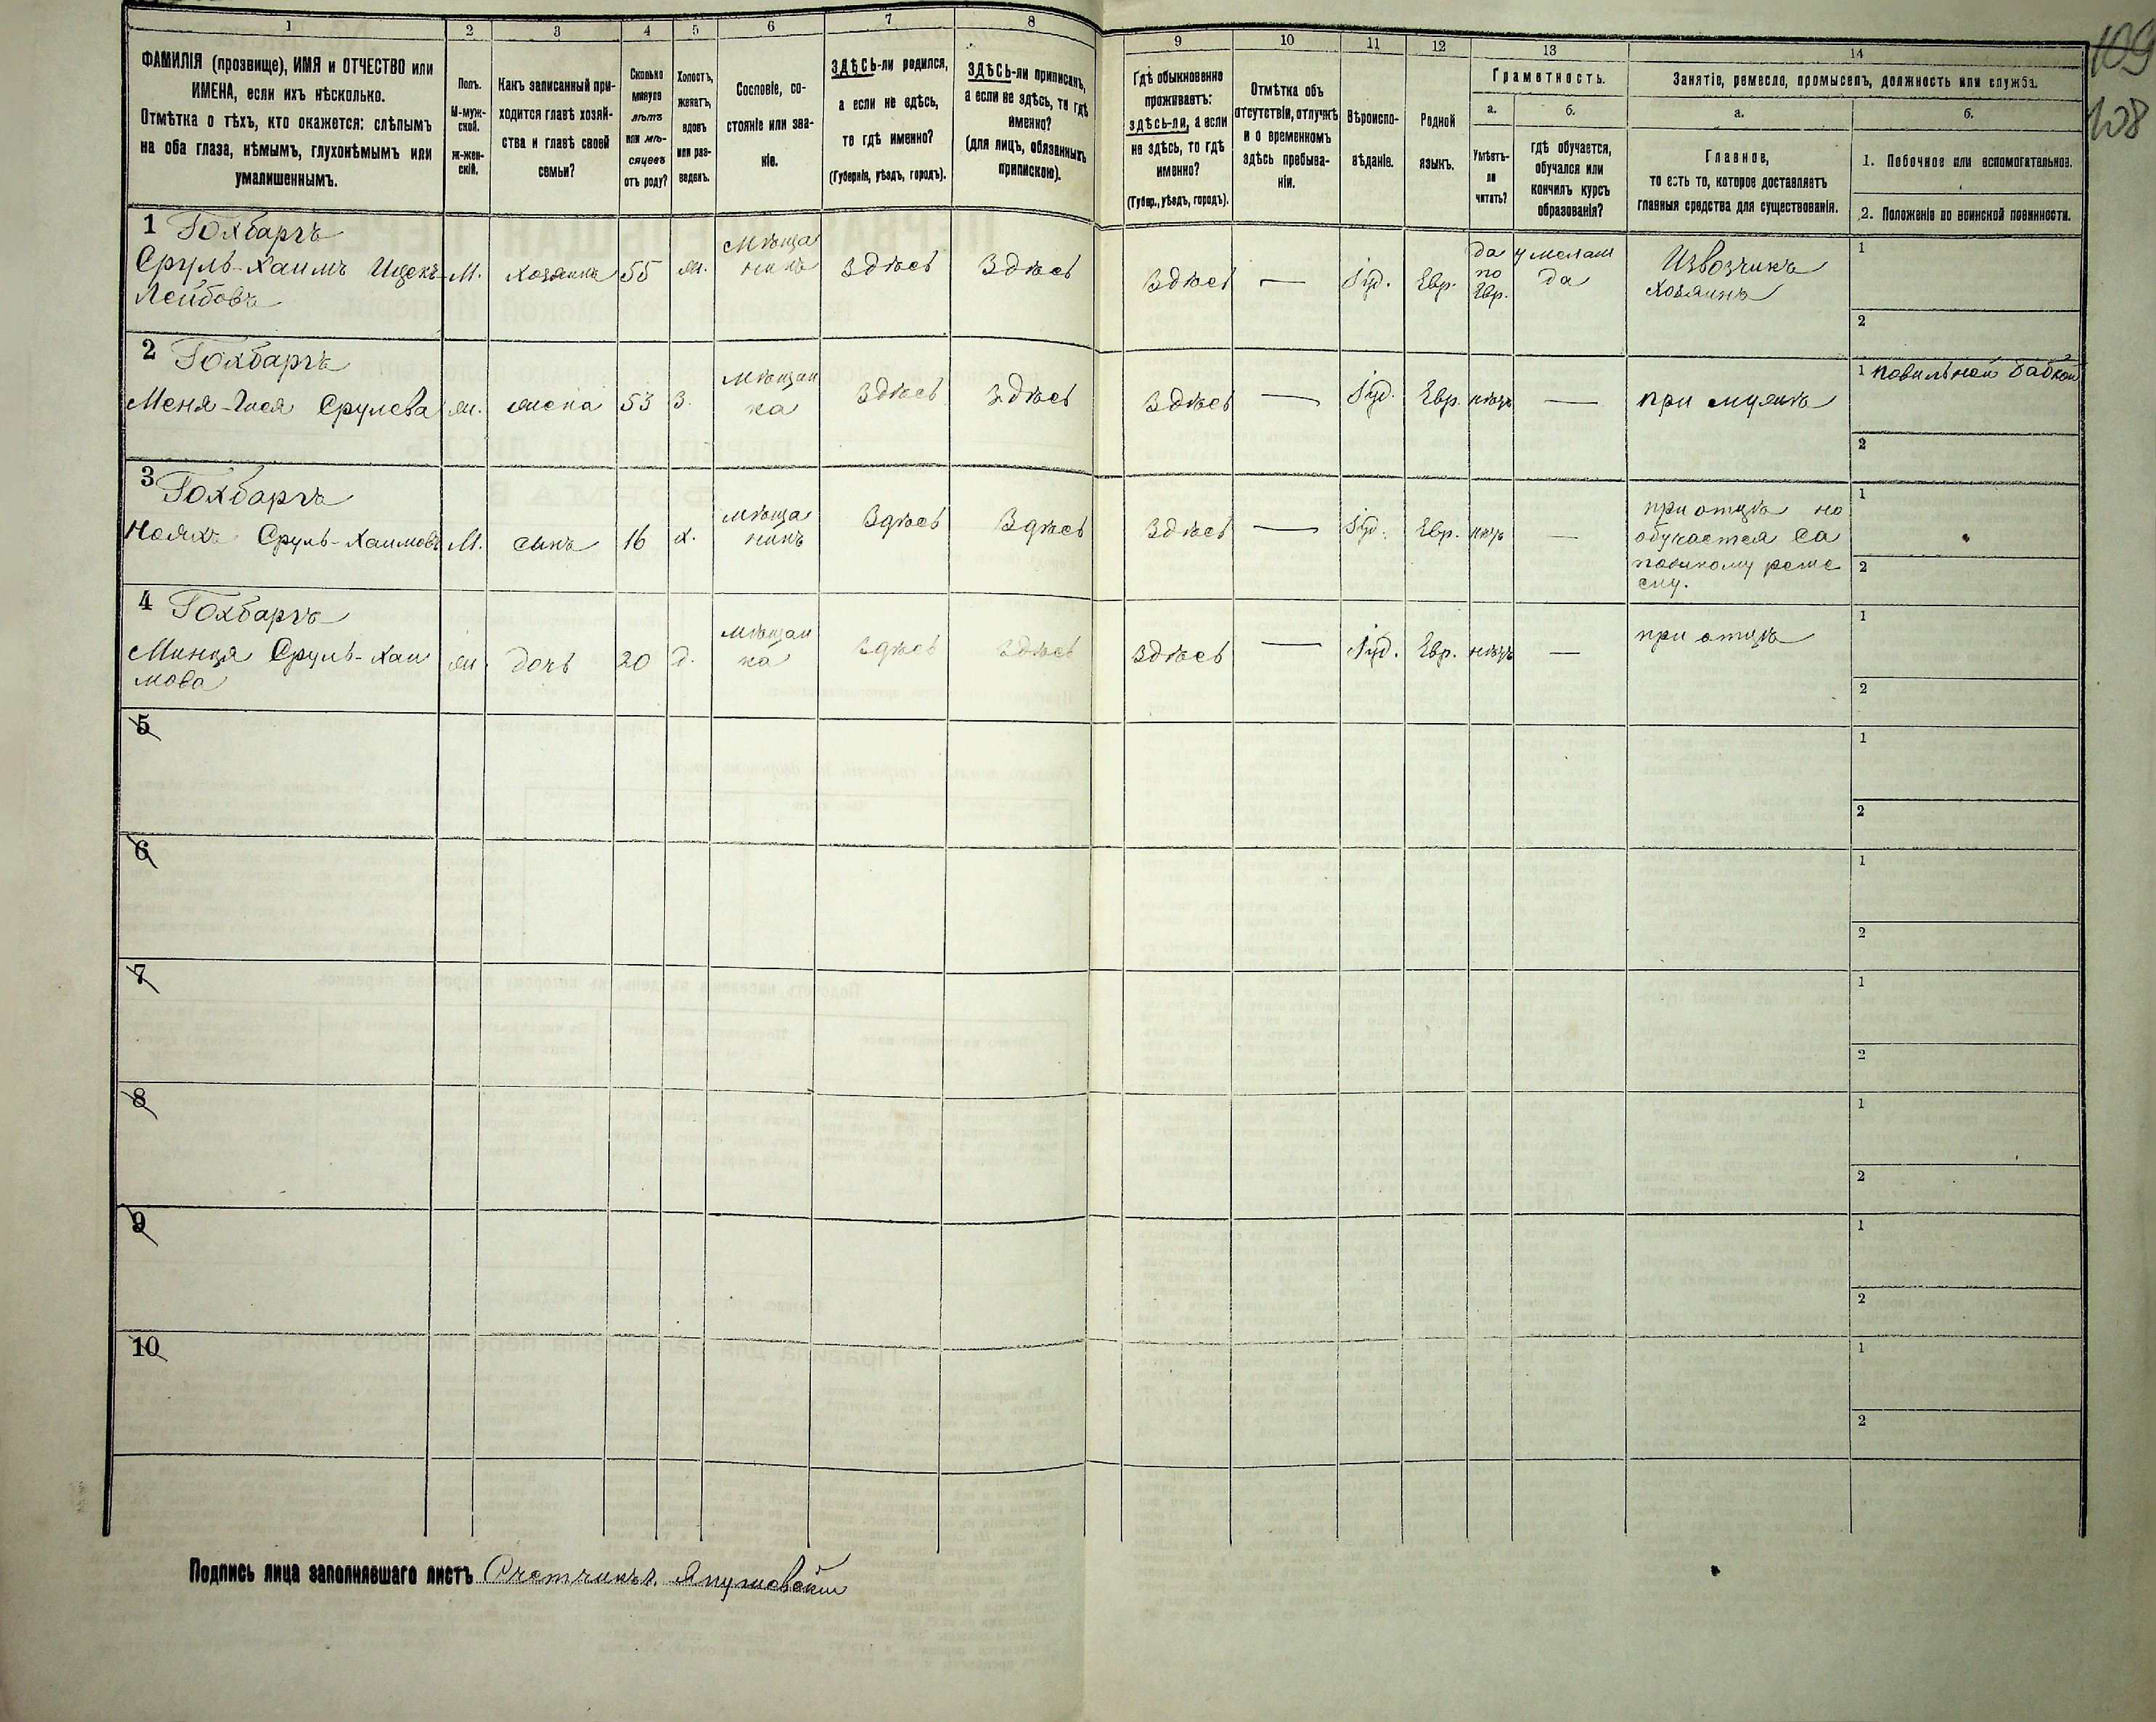 109
108
1
2
3
4
5
6
7
8
9
10
11
12
13
14
ФАМИЛІЯ (прозвище), ИМЯ и ОТЧЕСТВО или
ИМЕНА, если ихъ нѣсколько.
Отмѣтка о тѣхъ, кто окажется: слѣпымъ
на оба глаза, нѣмымъ, глухонѣмымъ или
умалишеннымъ.
Полъ.
М-муж-
ской.
Ж-жен-
скій.
Какъ записанный при-
ходится главѣ хозяй-
ства и главѣ своей
семьи?
Сколько
минуло
лѣтъ
или мѣ-
сяцевъ
отъ роду?
Холостъ,
женатъ,
вдовъ
или раз-
веденъ.
Сословіе, со-
стояніе или зва-
ніе.
ЗДѢСЬ-ли родился,
а если не здѣсь,
то гдѣ именно?
(Губернія, уѣздъ, городъ).
ЗДѢСЬ-ли приписанъ,
а если не здѣсь, то гдѣ
именно?
(для лицъ, обязанныхъ
припискою).
Гдѣ обыкновенно
проживаетъ:
здѣсь-ли, а если
не здѣсь, то гдѣ
именно?
(Губер., уѣздъ, городъ).
Отмѣтка объ
отсутствіи, отлучкѣ
и о временномъ
здѣсь пребыва-
ніи.
Вѣроиспо-
вѣданіе.
Родной
языкъ.
Грамотность.
а.
Умѣетъ-
ли
читать?
б.
гдѣ обучается,
обучался или
кончилъ курсъ
образованія?
Занятіе, ремесло, промыселъ, должность или служба.
а.
Главное,
то есть то, которое доставляетъ
главныя средства для существованія.
б.
1. Побочное или вспомогательное.
2. Положеніе по воинской повинности.
1 Гохбаргъ
Сруль-Хаимъ Ицекъ-
Лейбовъ
М.
хозяинъ
55
ж.
Мѣща
нинъ
Здѣсь
Здѣсь
Здѣсь
—
Іуд.
Евр.
да
по
Евр.
у мелам
да
Извозчикъ
хозяинъ
1
2
2 Гохбаргъ
Меня-Гися Срулева
ж.
жена
53
З.
Мѣщан
ка
Здѣсь
Здѣсь
Здѣсь
—
Іуд.
Евр.
нѣтъ
—
при мужѣ
1 повильной бабкой
2
3 Гохбаргъ
Нояхъ Сруль-Хаимовъ
М.
сынъ
16
х.
Мѣща
нинъ
Здѣсь
Здѣсь
Здѣсь
—
Іуд.
Евр.
нѣтъ
—
при отцѣ но
обучается са
пожному реме
слу.
1
2
4 Гохбаргъ
Минця Сруль-Хаи
мова
ж.
дочь
20
д.
Мѣщан
ка
Здѣсь
Здѣсь
Здѣсь
—
Іуд.
Евр.
нѣтъ
—
при отцѣ
1
2
5
1
2
6
1
2
7
1
2
8
1
2
9
1
2
10
1
2
Подпись лица заполнявшаго листъ Счетчикъ